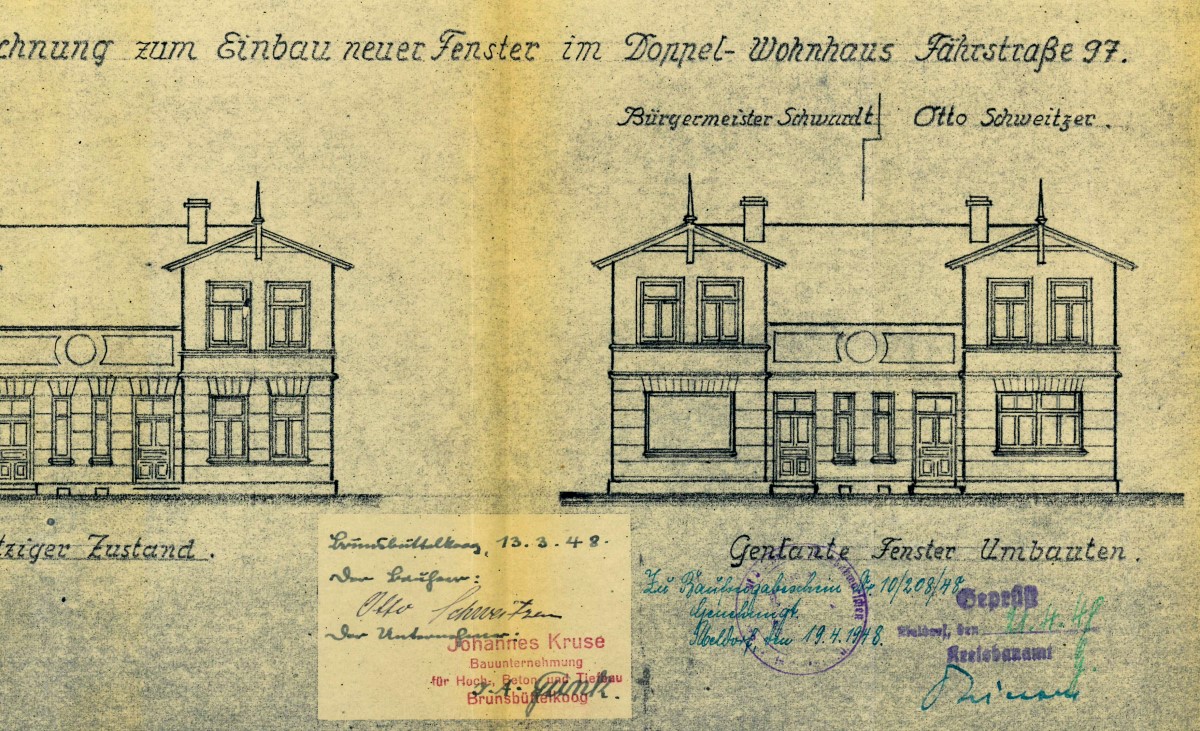 chnung zum Einbau neuer Fenster im Doppel- Wohnhaus Fährstraße 97.
Bürgermeister Schwardt Otto Schweitzer.
tziger Zustand.
Geplante Fenster Umbauten.
Brunsbüttelkoog, 13.3.48.
Der Bauherr:
Otto Schweitzer
Der Unternehmer:
Johannes Kruse
Bauunternehmung
für Hoch-, Beton- und Tiefbau
Brunsbüttelkoog
I.A.
Zu Nr. 10/208/48
Genehmigt.
den 19.4.1948.
Geprüft
Meldorf, den
Kreisbauamt